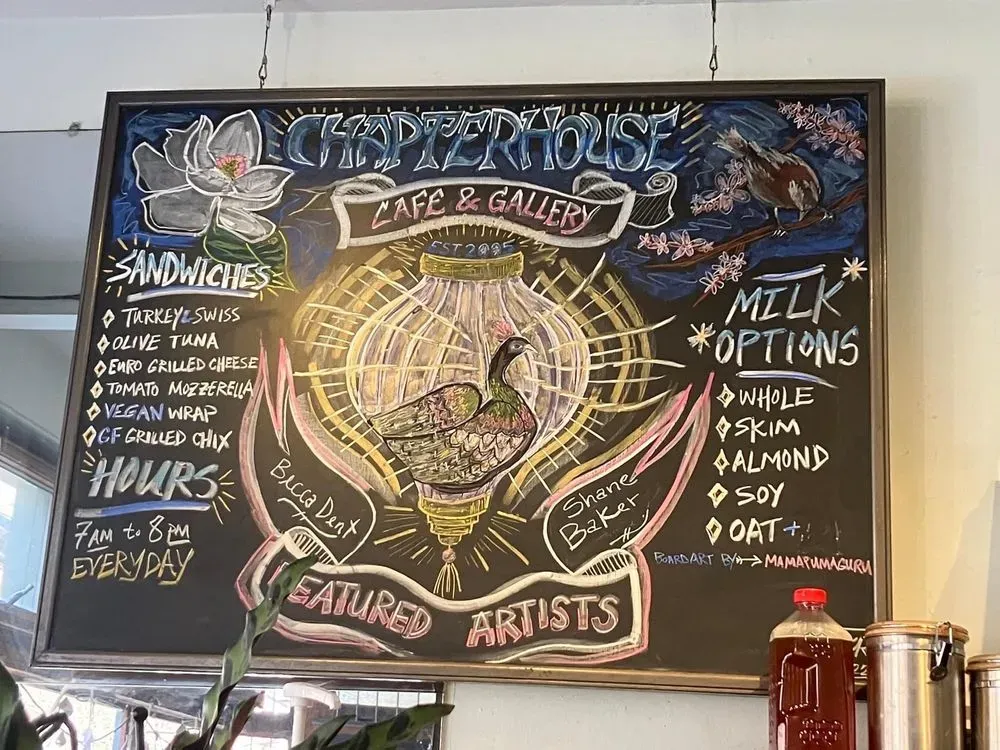 CHAPTERHOUSE
CAFE & GALLERY
EST 2005
SANDWICHES
TURKEY & SWISS
OLIVE TUNA
EURO GRILLED CHEESE
TOMATO MOZZERELLA
VEGAN WRAP
GF GRILLED CHIX
HOURS
7AM to 8PM
EVERYDAY
MILK
OPTIONS
WHOLE
SKIM
ALMOND
SOY
OAT +
BOARD ART BY → MAMAPUMAGURU
Becca Denx
Shane
Baker
FEATURED ARTISTS